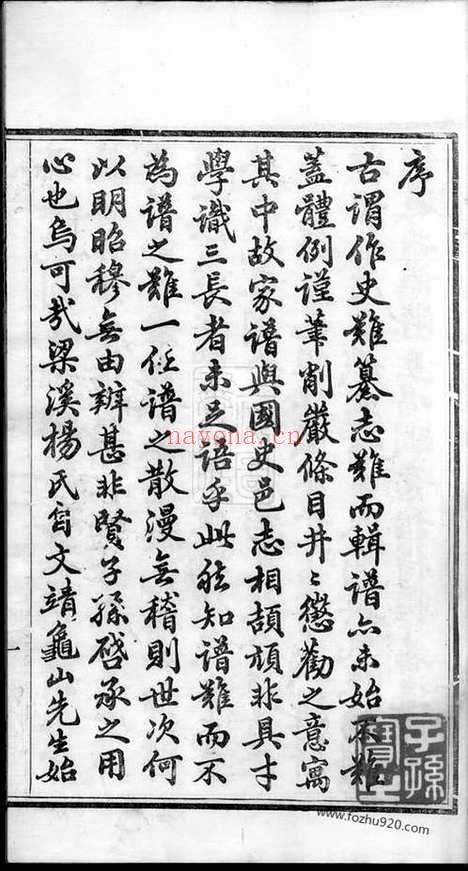 序
古謂作史難纂志難而輯譜亦未始不難
蓋體例謹筆削嚴條目井〻懲勸之意寓
其中故家譜與國史邑志相頡頏非具才
學識三長者未足語乎此能知譜難而不
為譜之難一任譜之散漫無稽則世次何
以明昭穆無由辨甚非賢子孫啓承之用
心也烏可哉梁溪楊氏自文靖龜山先生始
子孫
寶之
nayona.cn
www.fozhu920.com